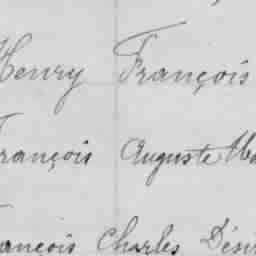 Henry François
François Auguste
François Charles